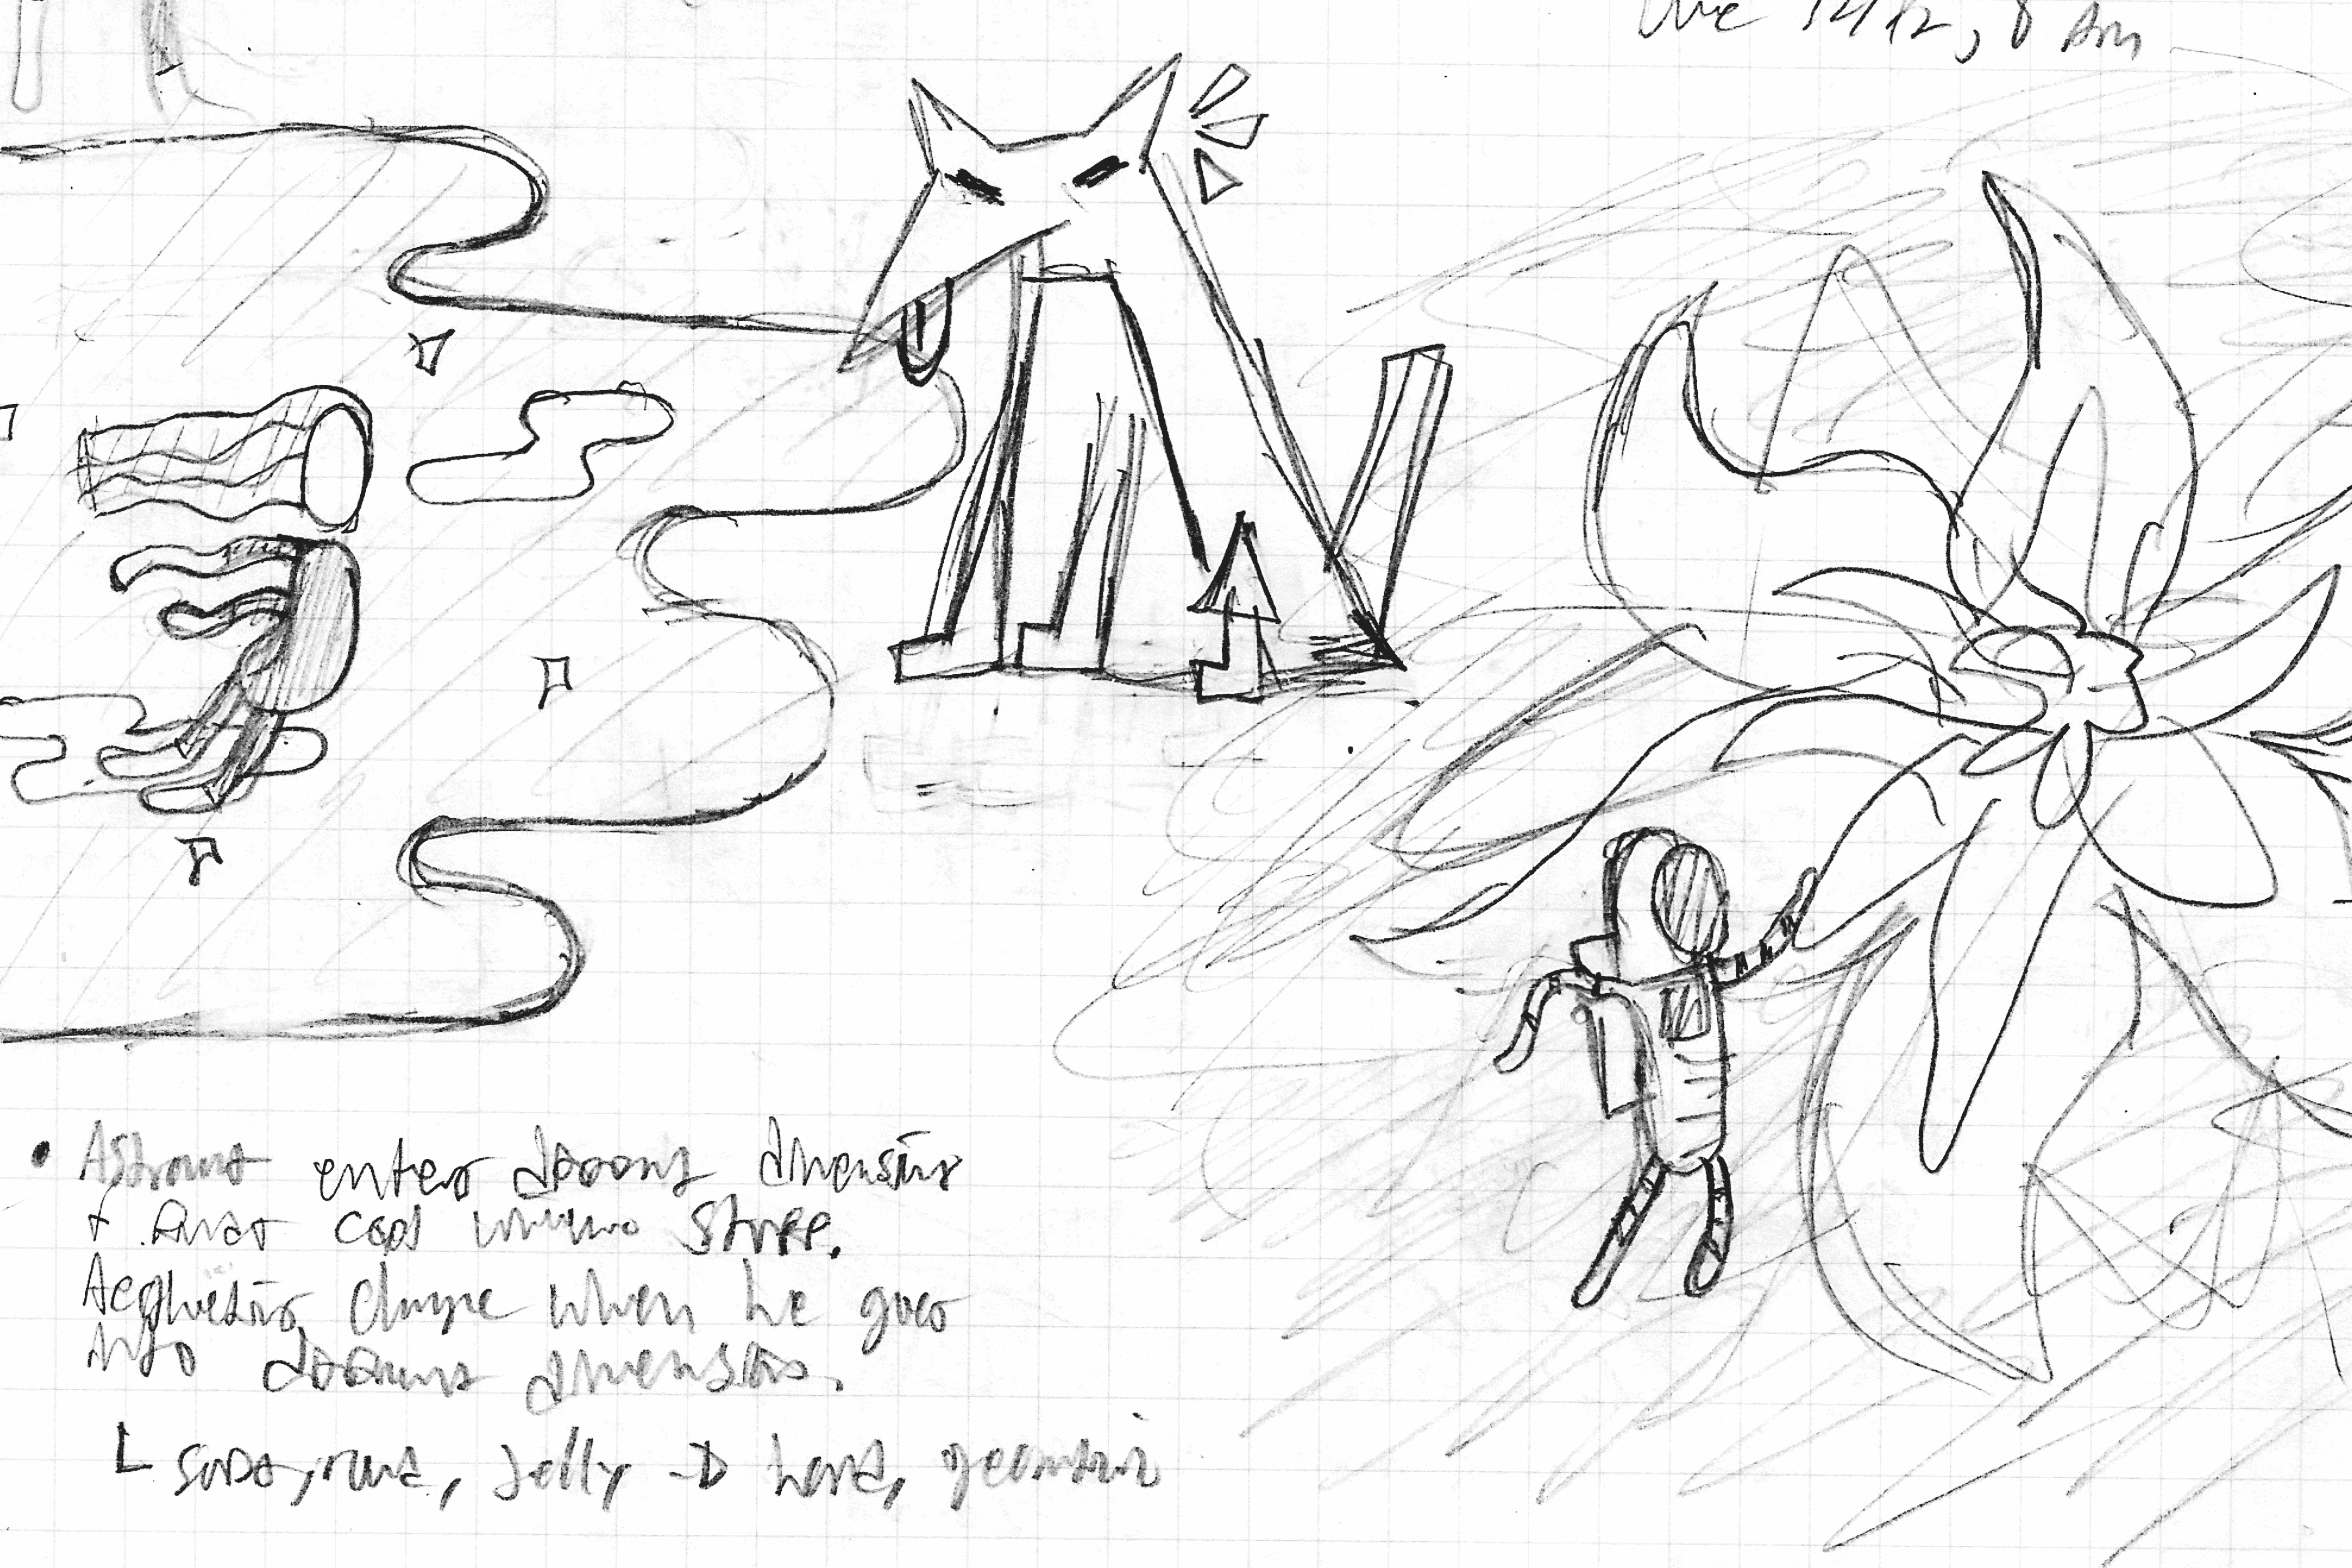 12/12, 8 Am
• Astronaut enters dreamy dimension
+ finds cool unknown stuff.
Aesthetics change when he goes
into dreamy dimension.
L round, jelly → hard, geometric